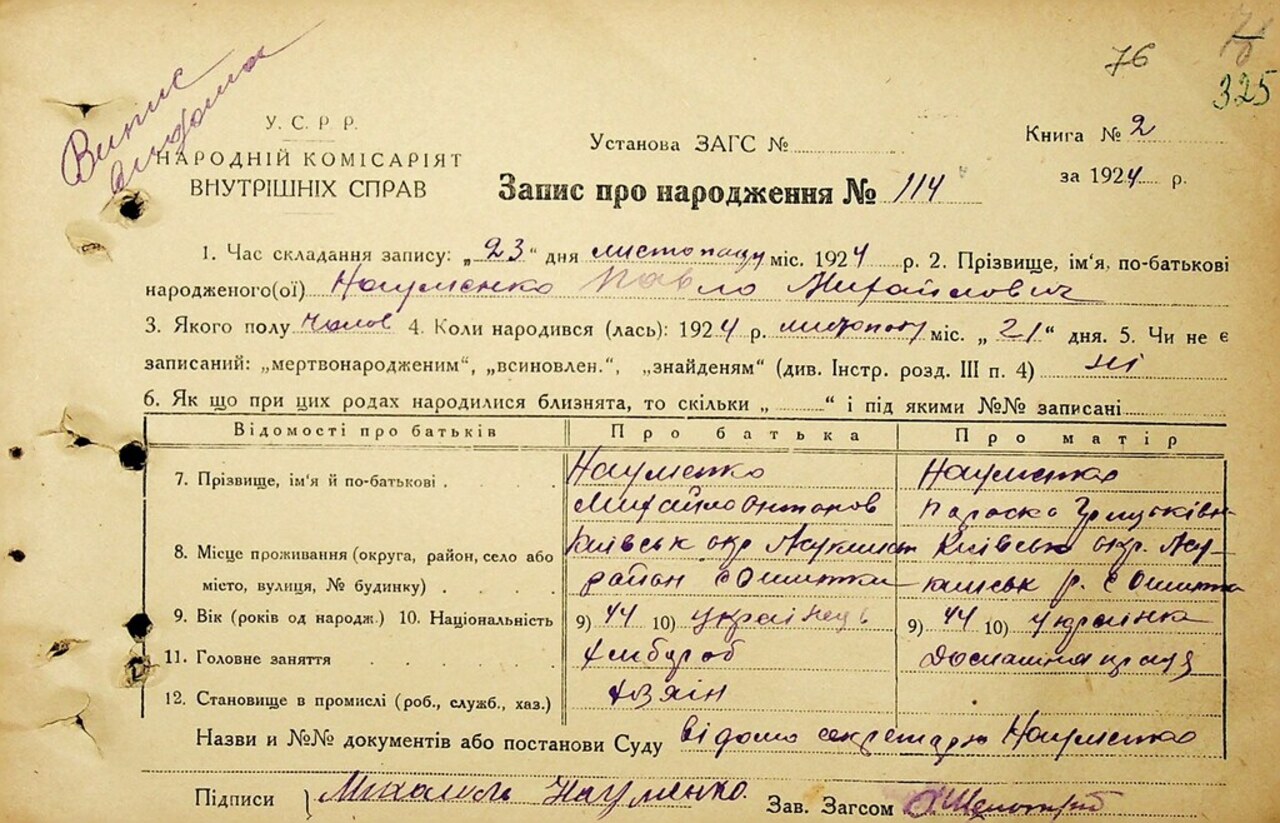 76
325
Випис видана
У. С. Р. Р.
НАРОДНІЙ КОМІСАРІЯТ
ВНУТРІШНІХ СПРАВ
Установа ЗАГС №
Книга № 2
за 1924 р.
Запис про народження № 114
1. Час складання запису: „23" дня листопаду міс. 1924 р. 2. Прізвище, ім'я, по-батькові
народженого(ої) Науменко Павло Михайлович
3. Якого полу чолов 4. Коли народився (лась): 1924 р. листопаду міс. „21" дня. 5. Чи не є
записаний: „мертвонародженим", „всиновлен.", „знайденям" (див. Інстр. розд. III п. 4) ні
6. Як що при цих родах народилися близнята, то скільки „ " і під якими №№ записані
Відомості про батьків Про батька Про матір
7. Прізвище, ім'я й по-батькові Науменко Науменко
Михайло Антонов Параска Грицьківн
8. Місце проживання (округа, район, село або Київськ окр Київськ окр.
місто, вулиця, № будинку) район с Ошитки р. с Ошитки
9. Вік (років од народж.) 10. Національність 9) 44 10) українець 9) 44 10) українка
11. Головне заняття хлібороб домашня праця
12. Становище в промислі (роб., служб., хаз.) хазяїн
Назви и №№ документів або постанови Суду відомо секретарю Науменко
Підписи Науменко Зав. Загсом